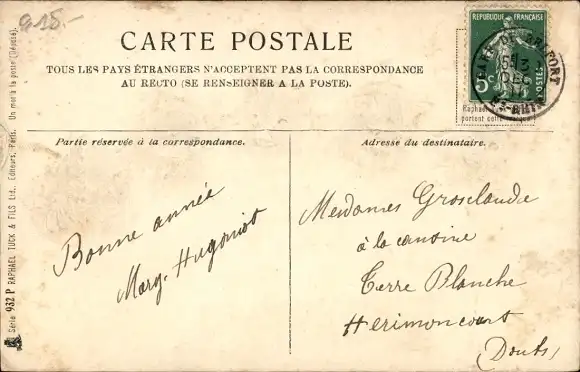 915.-
CARTE POSTALE
TOUS LES PAYS ÉTRANGERS N'ACCEPTENT PAS LA CORRESPONDANCE
AU RECTO (SE RENSEIGNER A LA POSTE).
RÉPUBLIQUE FRANÇAISE
5c
POSTES
GARE DE BELFORT
13
DEC
HT-RHIN
Raphael
portent cette
Partie réservée à la correspondance.
Adresse du destinataire.
Bonne année
Marg. Hugoniot
Mesdames Grosclaude
à la cantine
Terre Blanche
Herimoncourt
(Doubs)
Série 932 P RAPHAEL TUCK & FILS Ltd. Editeurs, Paris. Un mot à la poste [Déposé].